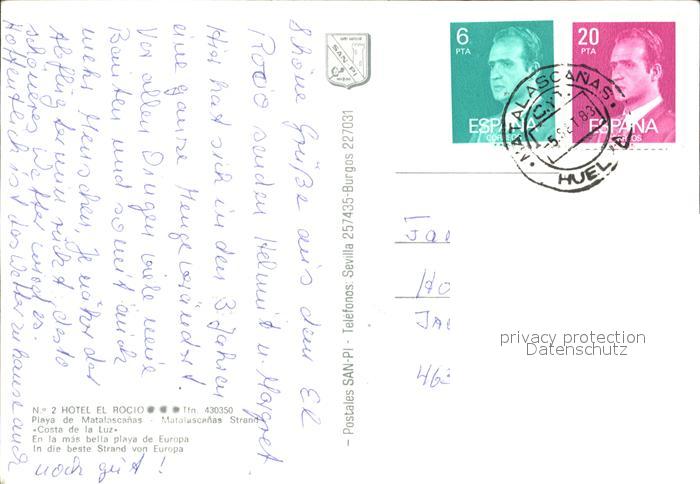 Schöne Grüße aus dem El
Rocio senden Helmut u. Margret.
Hier hat sich in den 3 Jahren
eine ganze Menge verändert.
Vor allen Dingen viele neue
Bauten und somit auch
mehr Menschen. Je näher der
Abflug termin rückt, desto
schöneres Wetter wird es.
Hoffentlich ist das Wetter zuhause auch
noch gut!
SAN-PI
– Postales SAN-PI - Teléfonos: Sevilla 257435-Burgos 227031
N.º 2 HOTEL EL ROCIO Tfn. 430350
Playa de Matalascañas - Matalascañas Strand
«Costa de la Luz»
En la más bella playa de Europa
In die beste Strand von Europa
6 PTA
ESPAÑA
CORREOS
20 PTA
ESPAÑA
MATALASCAÑAS
HUELVA
privacy protection
Datenschutz